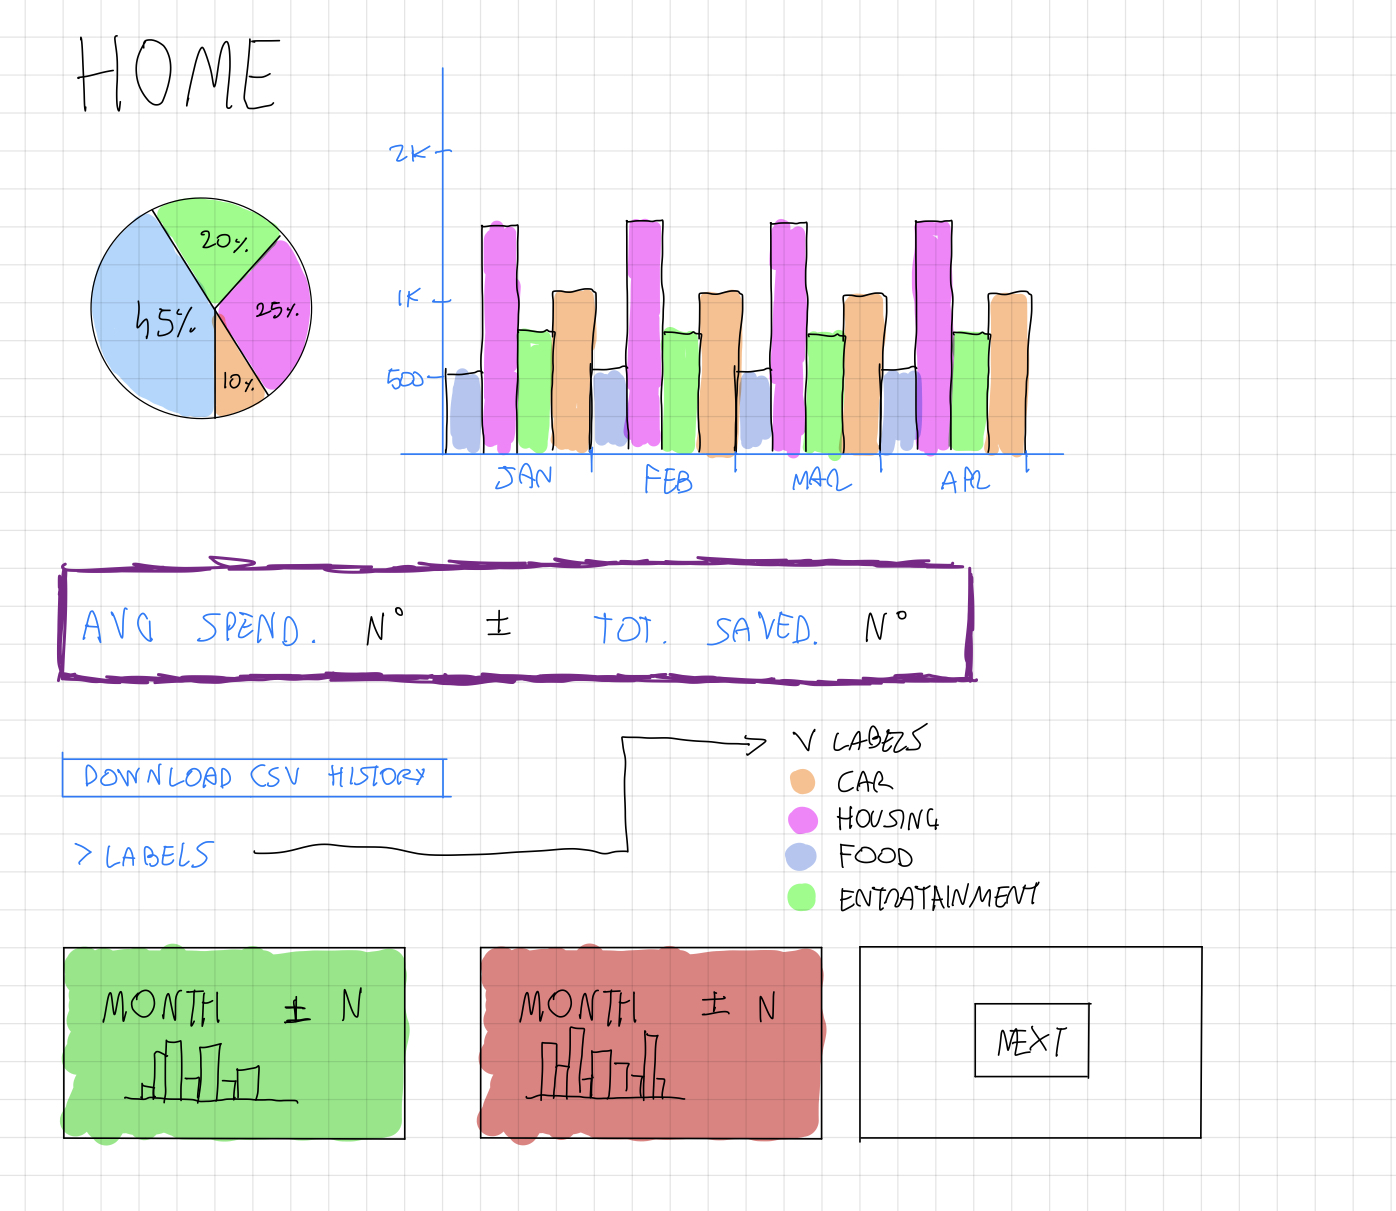 HOME
2K
1K
500
20%
45%
25%
10%
JAN FEB MAR APR
AVG SPEND. N° ± TOT. SAVED. N°
DOWNLOAD CSV HISTORY
> LABELS
V LABELS
CAR
HOUSING
FOOD
ENTRATAINMENT
MONTH ± N
MONTH ± N
NEXT